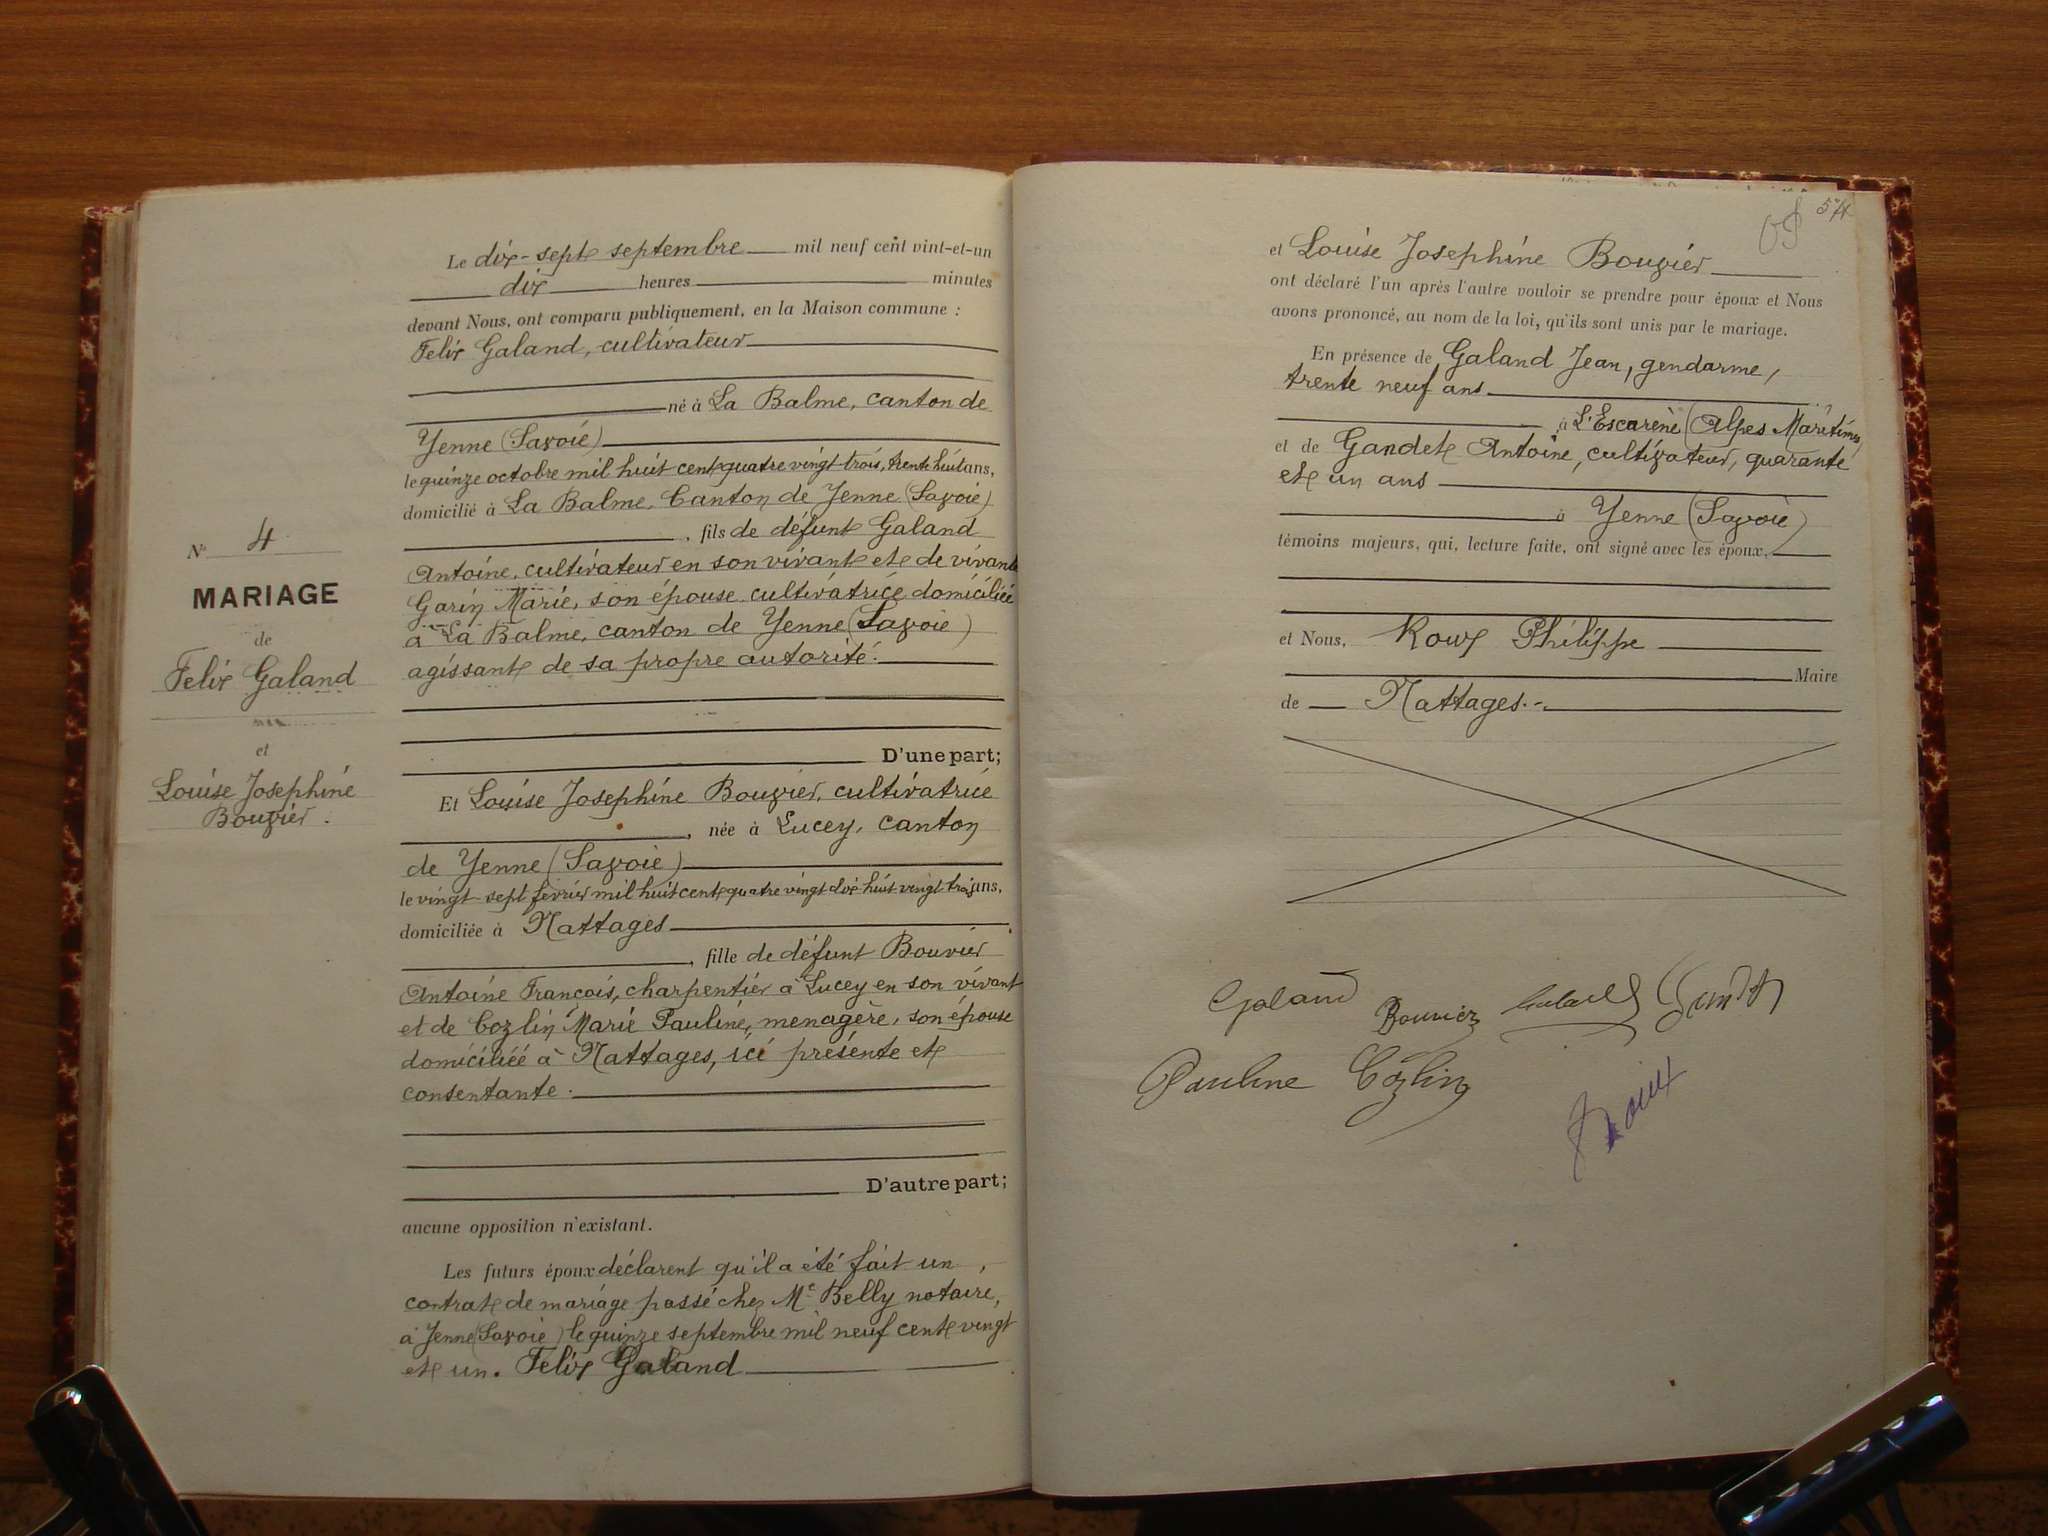 Le dix-sept septembre mil neuf cent vint-et-un
dix heures minutes
devant Nous, ont comparu publiquement, en la Maison commune :
Felix Galand, cultivateur
né à La Balme, canton de
Yenne (Savoie)
le quinze octobre mil huit cent quatre vingt trois, trente huit ans,
domicilié à La Balme, Canton de Yenne (Savoie)
, fils de défunt Galand
Antoine, cultivateur en son vivant et de vivante
Garin Marie, son épouse cultivatrice domiciliée
à La Balme, canton de Yenne (Savoie)
agissant de sa propre autorité.
D'une part;
Et Louise Josephine Bouvier, cultivatrice
, née à Lucey, canton
de Yenne (Savoie)
le vingt-sept février mil huit cent quatre vingt dix huit vingt trois ans,
domiciliée à Nattages
, fille de défunt Bouvier
Antoine François, charpentier à Lucey en son vivant
et de Cozlin Marie Pauline, menagère, son épouse
domiciliée à Nattages, ici présente et
consentante.
D'autre part;
aucune opposition n'existant.
Les futurs époux déclarent qu'il a été fait un
contrat de mariage passé chez Me Belly notaire,
à Yenne (Savoie) le quinze septembre mil neuf cent vingt
et un. Felix Galand
No 4
MARIAGE
de
Felix Galand
et
Louise Josephine
Bouvier.
57
et Louise Josephine Bouvier
ont déclaré l'un après l'autre vouloir se prendre pour époux et Nous
avons prononcé, au nom de la loi, qu'ils sont unis par le mariage.
En présence de Galand Jean, gendarme,
trente neuf ans
à L'Escarène (Alpes Maritimes
et de Gandet Antoine, cultivateur, quarante
et un ans
à Yenne (Savoie)
témoins majeurs, qui, lecture faite, ont signé avec les époux,
et Nous, Roux Philippe
Maire
de Nattages.-
Galand Bouvier Galand Gandet
Pauline Cozlin
Roux